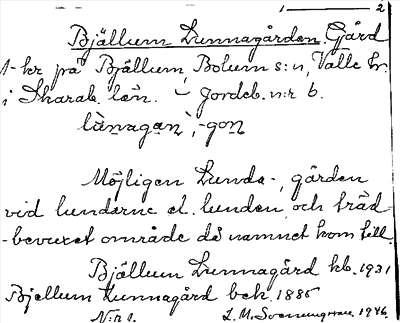 1 ——— 2
Bjällum Lunnagården. Gård
1-kr på Bjällum, Bolum s:n, Valle hr.
i Skarab. län. – Jordeb. n:r 6.
lùnagaṇ, -goṇ
Möjligen Lunda-, gården
vid lundarne el. lunden, och träd-
-bevuxet område då namnet kom till.
Bjällum Lunnagård kb. 1931
Bjellum Lunnagård bek. 1885
N:r 1.
L. M. 1946.